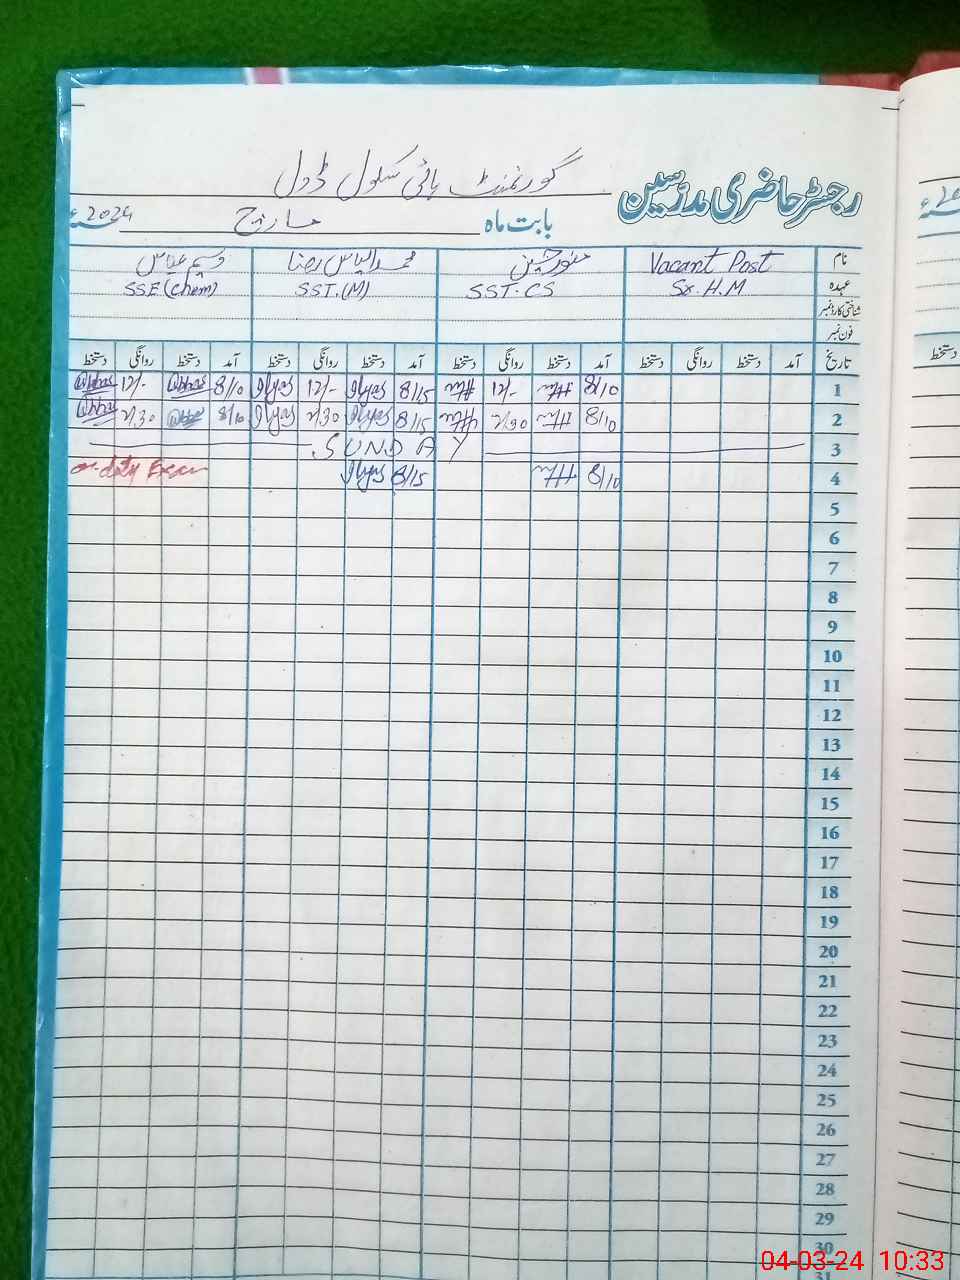 گورنمنٹ ہائی سکول ڈول
رجسٹر حاضری مدرسین
بابت ماہ مارچ 2024ء
نام Vacant Post منور حسین محمد الیاس رضا وسیم عباس
عہدہ Sr. H.M SST-CS SST.(M) SSE (Chem)
شناختی کارڈ نمبر
فون نمبر
تاریخ آمد دستخط روانگی دستخط آمد دستخط روانگی دستخط آمد دستخط روانگی دستخط آمد دستخط روانگی دستخط
1 8/10 12/- 8/15 Ilyas 12/- Ilyas 8/10 Abbas 12/- Abbas
2 8/10 2/30 8/15 Ilyas 2/30 Ilyas 8/10 Abbas 2/30 Abbas
3 SUNDAY
4 8/10 8/15 Ilyas on duty Exam
5
6
7
8
9
10
11
12
13
14
15
16
17
18
19
20
21
22
23
24
25
26
27
28
29
30
31
دستخط
04-03-24 10:33